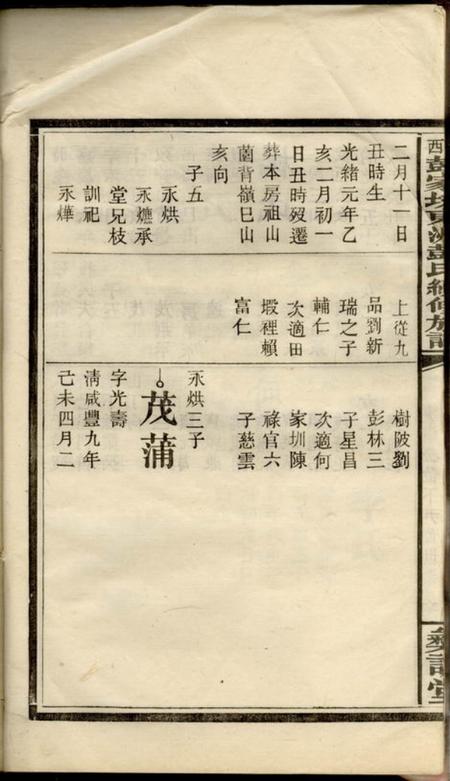 二月十一日
丑時生
光緒元年乙
亥二月初一
日丑時歿遷
葬本房祖山
菌背嶺巳山
亥向
子五
永烘
永爊承
堂兄枝
訓祀
永燁
上從九
品劉新
瑞之子
輔仁
次適田
塅裡賴
富仁
樹陂劉
彭林三
子星昌
次適何
家圳陳
祿官六
子慈雲
永烘三子
茂蒲
字光壽
清咸豐九年
己未四月二